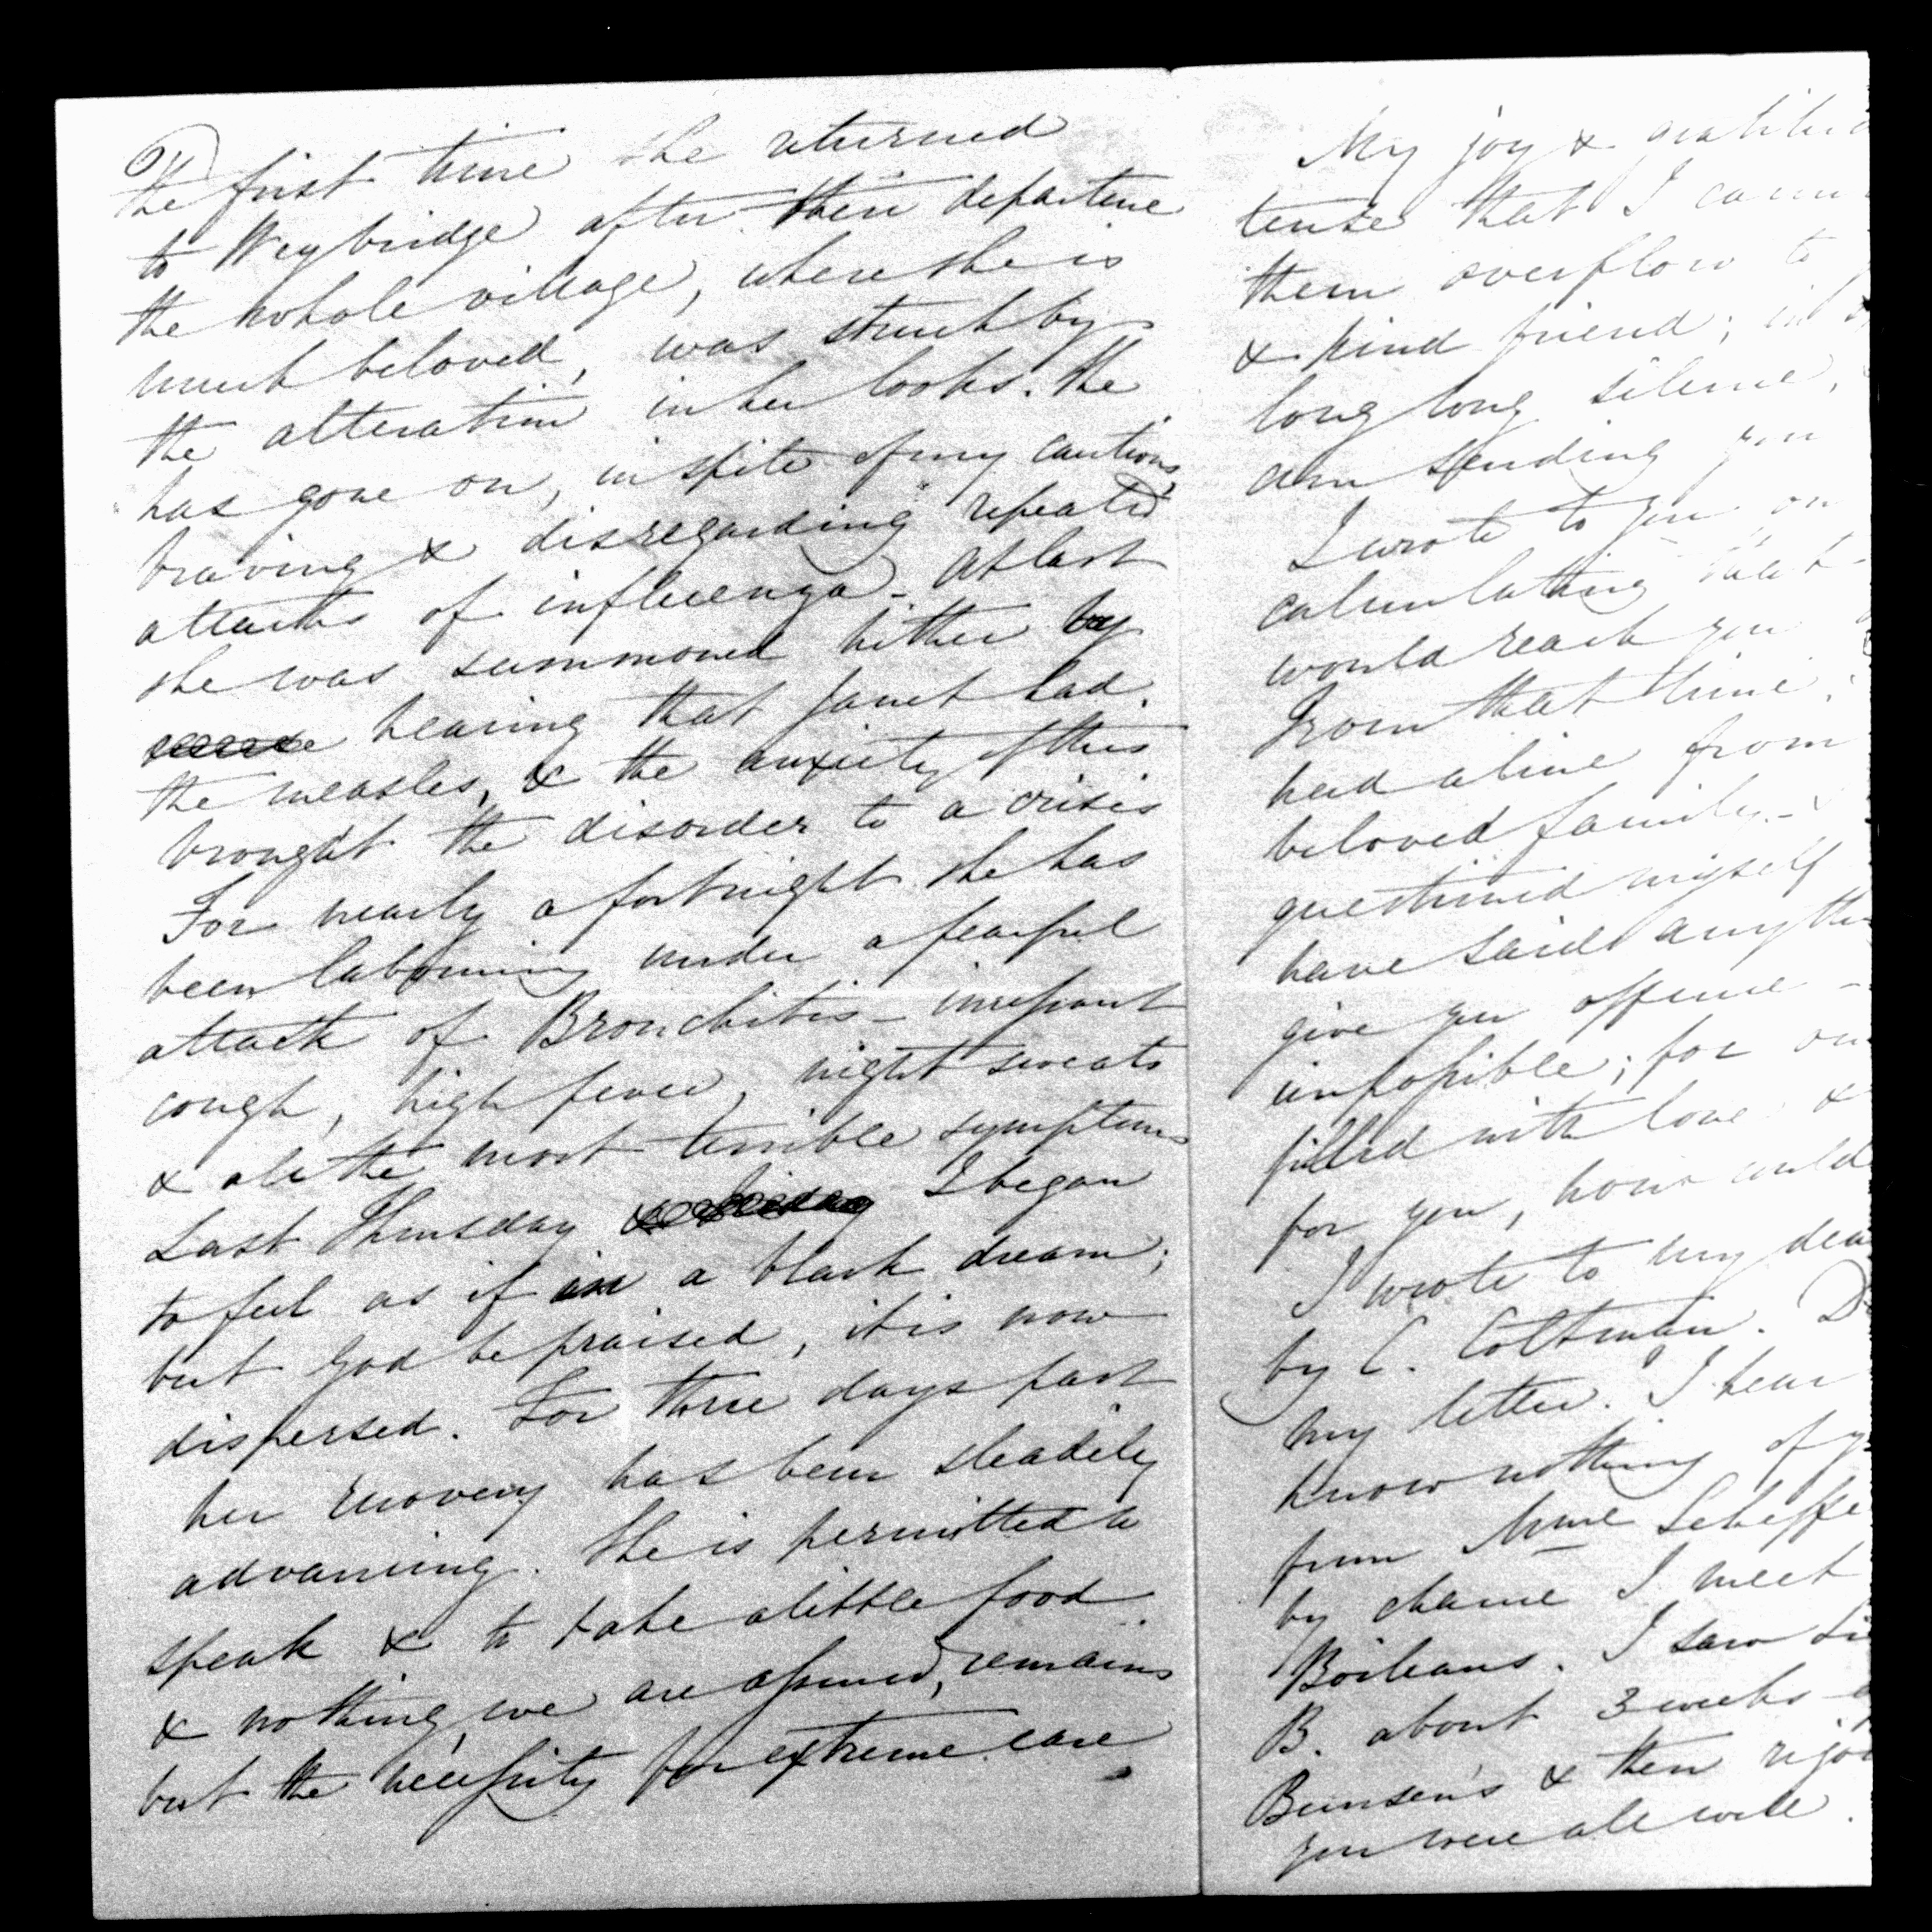 The first time she returned
to Weybridge after their departure
the whole village, where she is
much beloved, was struck by
the alteration in her looks. She
has gone on, in spite of my cautions,
braving & disregarding repeated
attacks of influenza - At last
she was summoned hither by
hearing that Janet had
the measles, & the anxiety of this
brought the disorder to a crisis
For nearly a fortnight she has
been labouring under a fearful
attack of Bronchitis - incessant
cough, high fever, night sweats
& all the most terrible symptoms
Last Thursday I began
to feel as if in a black dream;
but God be praised, it is now
dispersed. For three days past
her recovery has been steadily
advancing. She is permitted to
speak & to take a little food
& nothing, we are assured, remains
but the necessity for extreme care
My joy & gratitu
tense that I cann
them overflow to
& kind friend;
long long silence,
am sending you
I wrote to you on
calculating that
would reach you
From that time
had a line from
beloved family -
questioned myself
have said anythi
give you offence -
impossible; for
filled with love &
for you, how could
I wrote to my dea
by C. Coltman. D
my letter. I hear
know nothing of y
from Mme Scheffe
by chance I meet
Boileaus. I saw
B. about 3 weeks
Bunsen's & then rejoi
you were all well.